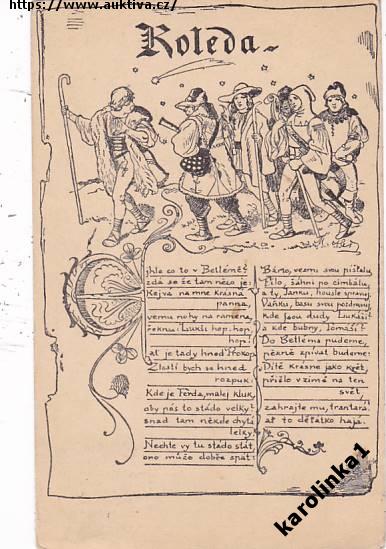 https://www.auktiva.cz/
Koleda
hle co to v Betlémě?
zdá se že tam něco je:
Kejvá na mne krásná
panna,
vemu nohy na ramena,
řeknu: Lukši hop, hop,
hop!
at je tady hned Prokop
Zlostí bych se hned
rozpuk:
Kde je Ferda, malej kluk,
aby pás to stádo velký:
snad tam někde chytá
lelky.
Nechte vy tu stádo stát,
ono může dobře spát!
Bárto, vezmi svou píšťalu,
šáhni po cimbálu,
a ty, Janku, housle spravuj,
Vaňku, basu svou
kde jsou dudy Lukáši?
a kde bubny, Tomáši?
Do Betléma pudeme,
pěkně zpívat budeme:
Dítě krásné jako květ,
přišlo v zimě na ten
svět,
zahrajte mu, trantará.
at to děťátko hajá.
karolinka1